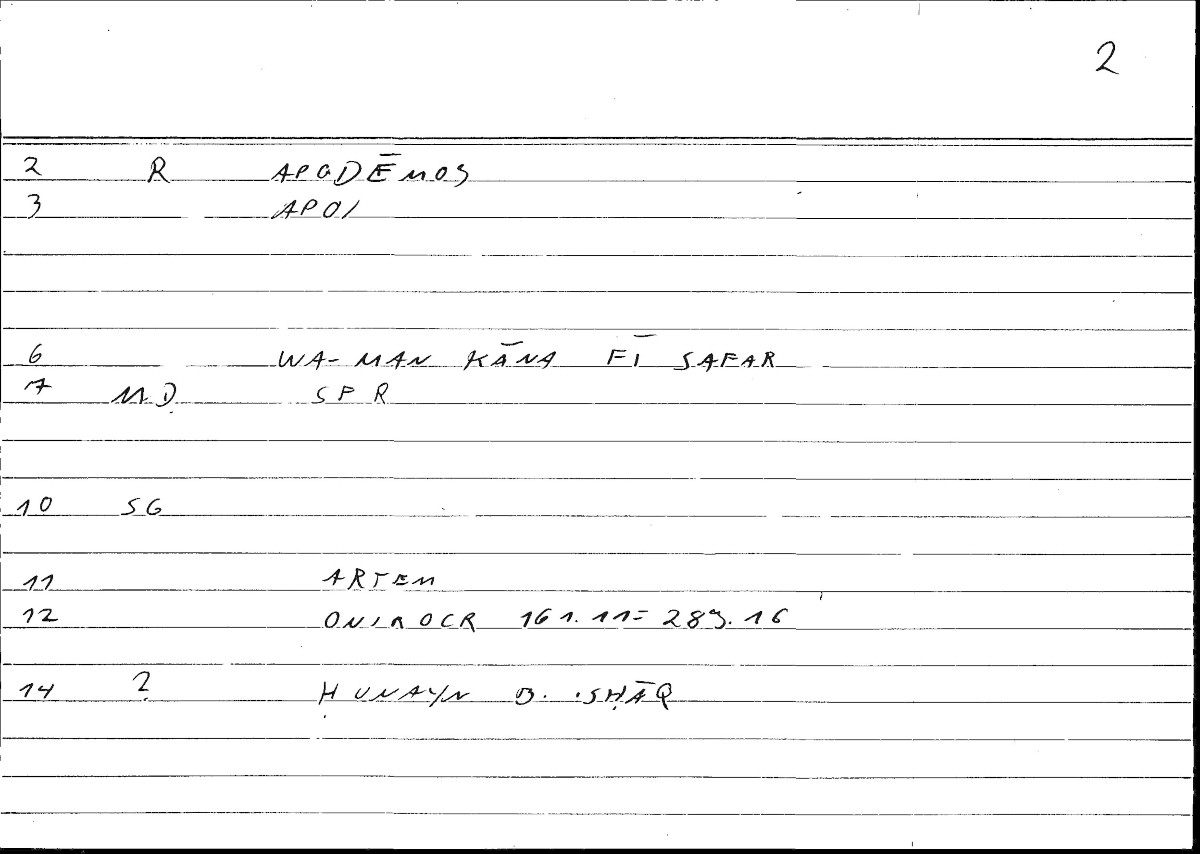 2
2 R APODĒMOS
3 APOI
6 WA-MAN KĀNA FĪ SAFAR
7 MD SFR
10 SG
11 ARTEM
12 ONIROCR 161.11=289.16
14 ? ḤUNAYN B. ISḤĀQ